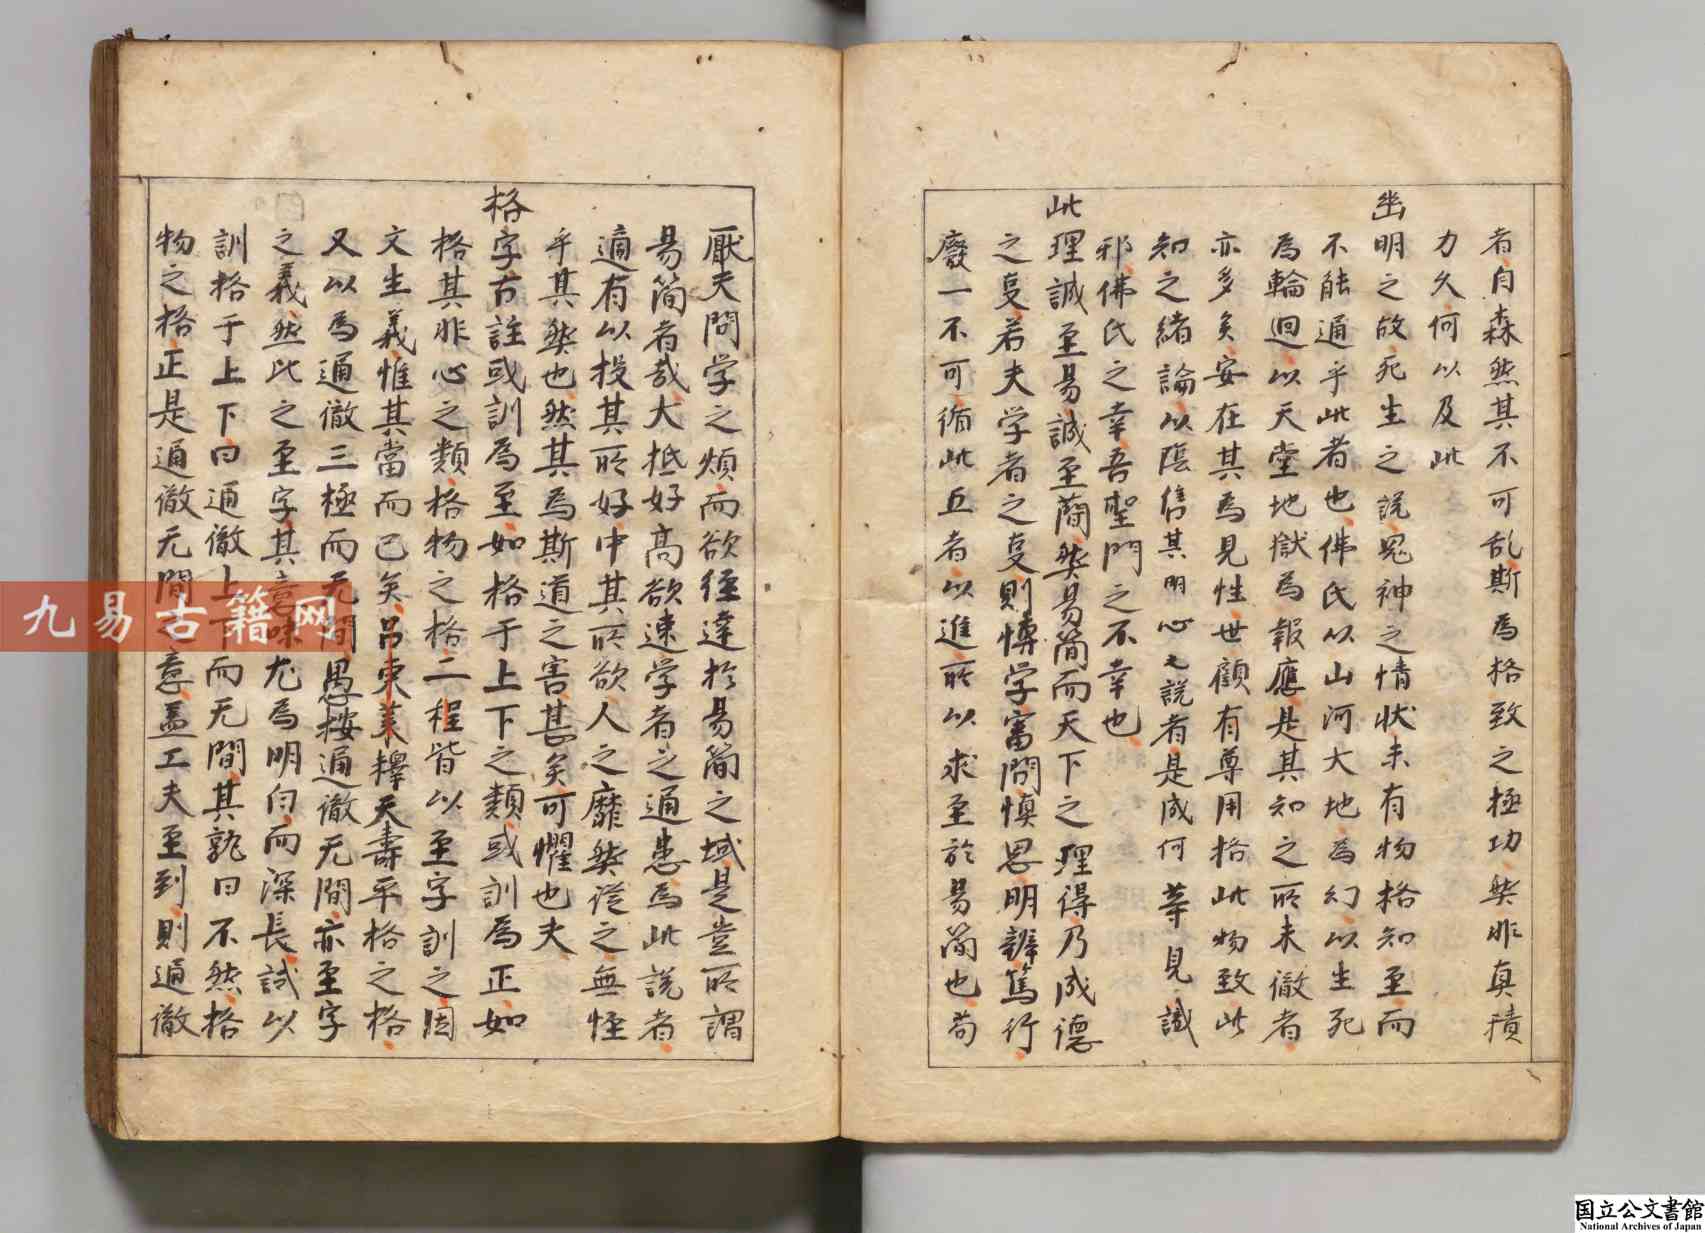 者自森然其不可乱斯為格致之極功然非真積
力久何以及此
幽明之故死生之説鬼神之情状未有物格知至而
不能通乎此者也佛氏以山河大地為幻以生死
為輪迴以天堂地獄為報應是其知之所未徹者
亦多矣安在其為見性世顧有尊用格此物致此
知之緒論以陰售其明心之説者是成何等見識
邪佛氏之幸吾聖門之不幸也
此理誠至易誠至簡然易簡而天下之理得乃成德
之事若夫学者之事則博学審問慎思明辨篤行
廢一不可循此五者以進所以求至於易簡也苟
厭夫問学之煩而欲徑達於易簡之域是豈所謂
易簡者哉大抵好高欲速学者之通患為此説者
適有以投其所好中其所欲人之靡然從之無怪
乎其然也然其為斯道之害甚矣可懼也夫
格字古註或訓為至如格于上下之類或訓為正如
格其非心之類格物之格二程皆以至字訓之因
文生義惟其當而已矣呂東莱釋天壽平格之格
又以為通徹三極而无間愚按通徹无間亦至字
之義然比之至字其意味尤為明白而深長試以
訓格于上下曰通徹上下而无間其孰曰不然格
物之格正是通徹无間之意盖工夫至到則通徹
九易古籍网
国立公文書館
National Archives of Japan